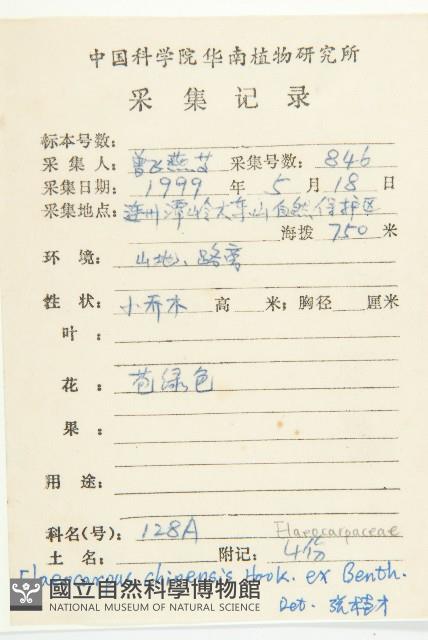 中国科学院华南植物研究所
采集记录
标本号数：
采集人：曾飞燕 采集号数：846
采集日期：1999 年 5 月 18 日
采集地点：连州潭岭大东山自然保护区
海拨 750 米
环境：山地、路旁
性状：小乔木 高 米；胸径 厘米
叶：
花：苞绿色
果：
用途：
科名(号)：128A Elaeocarpaceae
土名： 附记：4份
Elaeocarpus chinensis Hook. ex Benth.
Det.
國立自然科學博物館
NATIONAL MUSEUM OF NATURAL SCIENCE